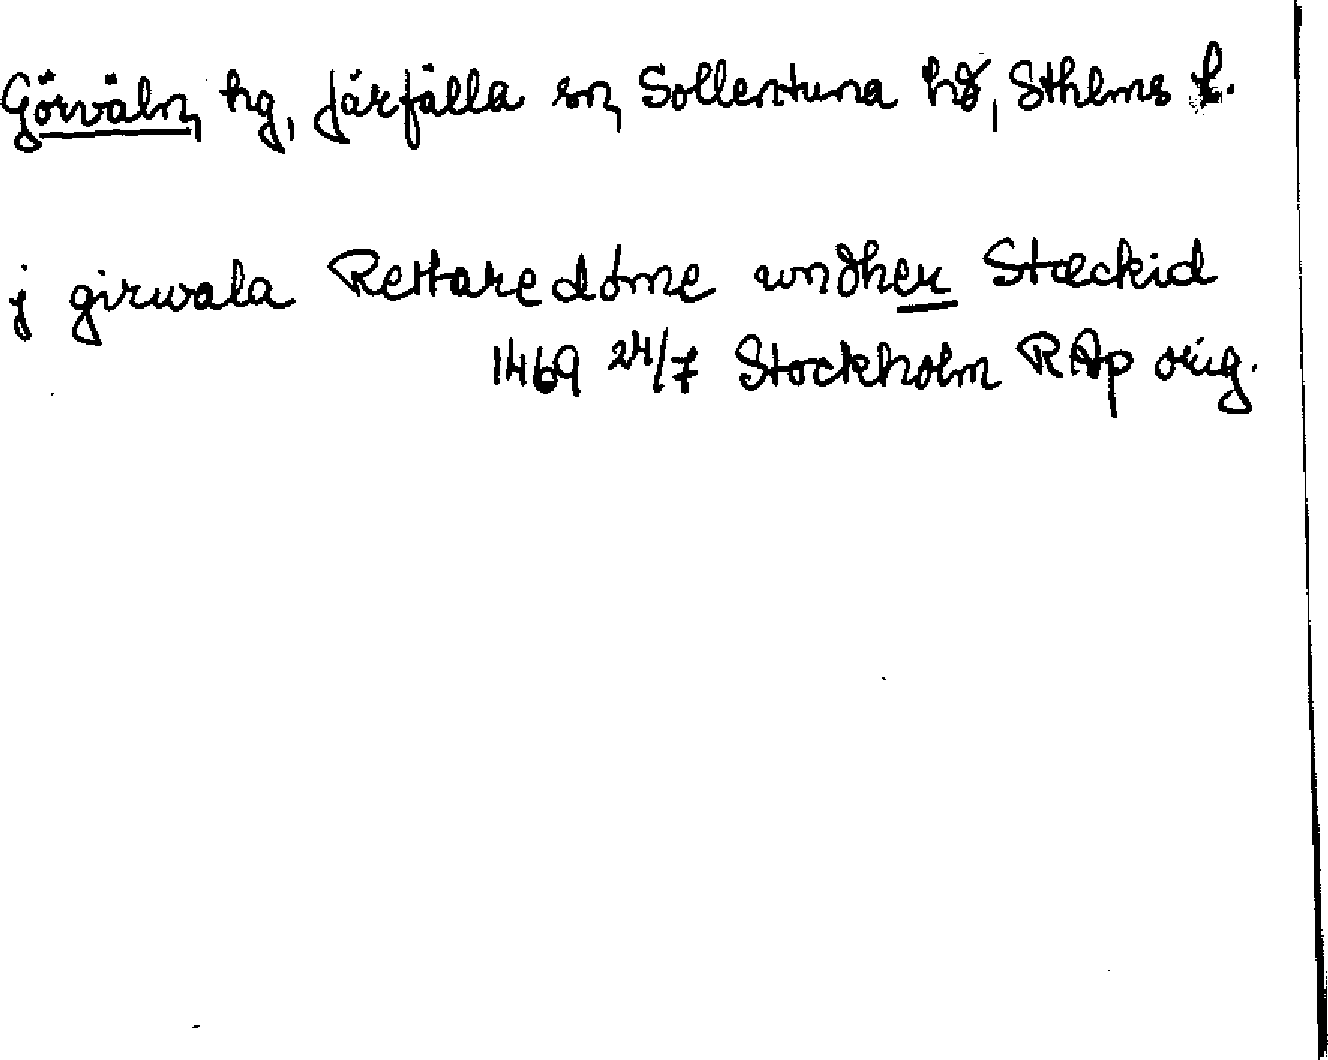 Görväln, hg, Järfälla sn, Sollentuna hd, Sthlms l.
j girwala Rettaredöme wndher Stæckid
1469 24/7 Stockholm RAp orig.